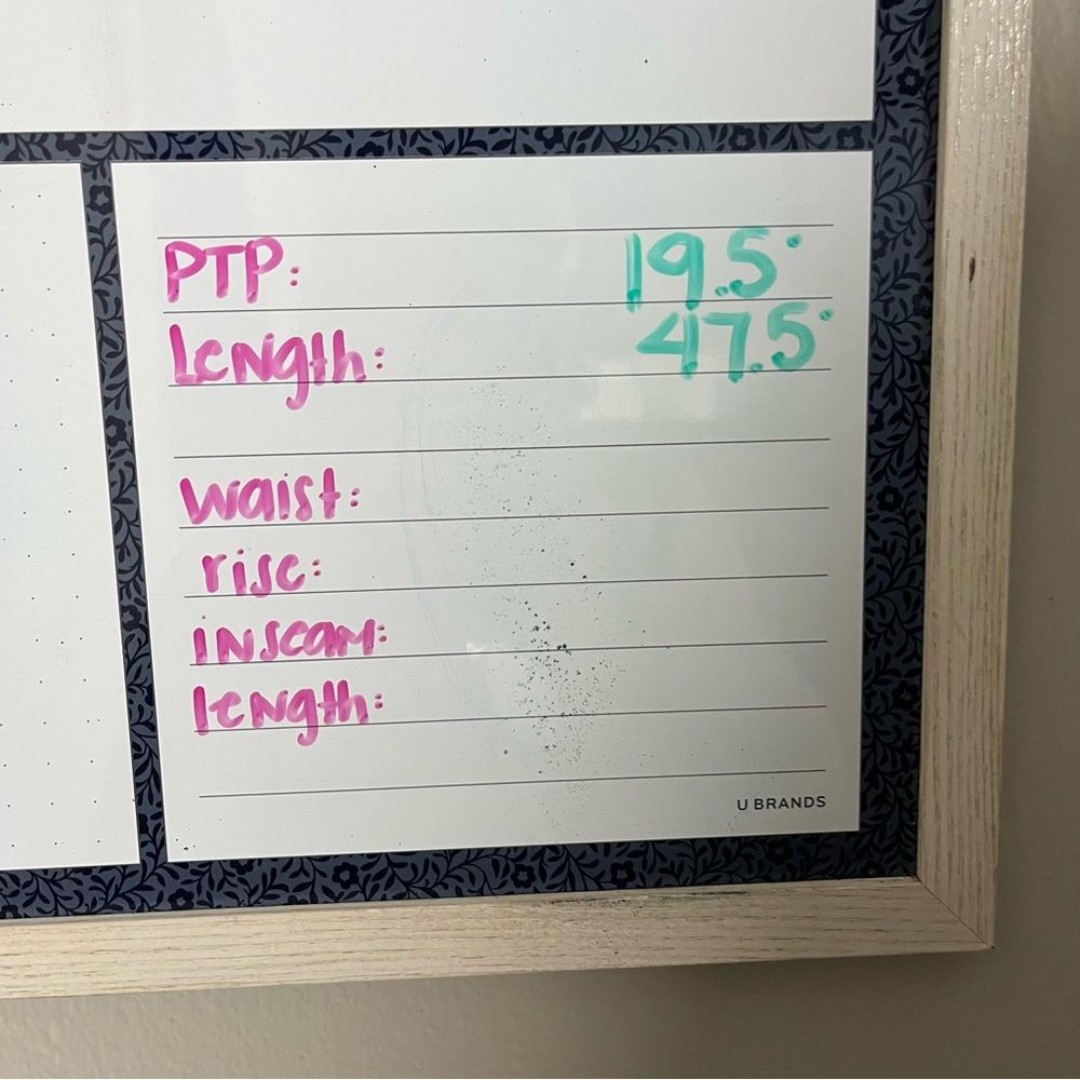 PTP: 19.5"
Length: 47.5"
waist:
rise:
INseam:
length:
U BRANDS